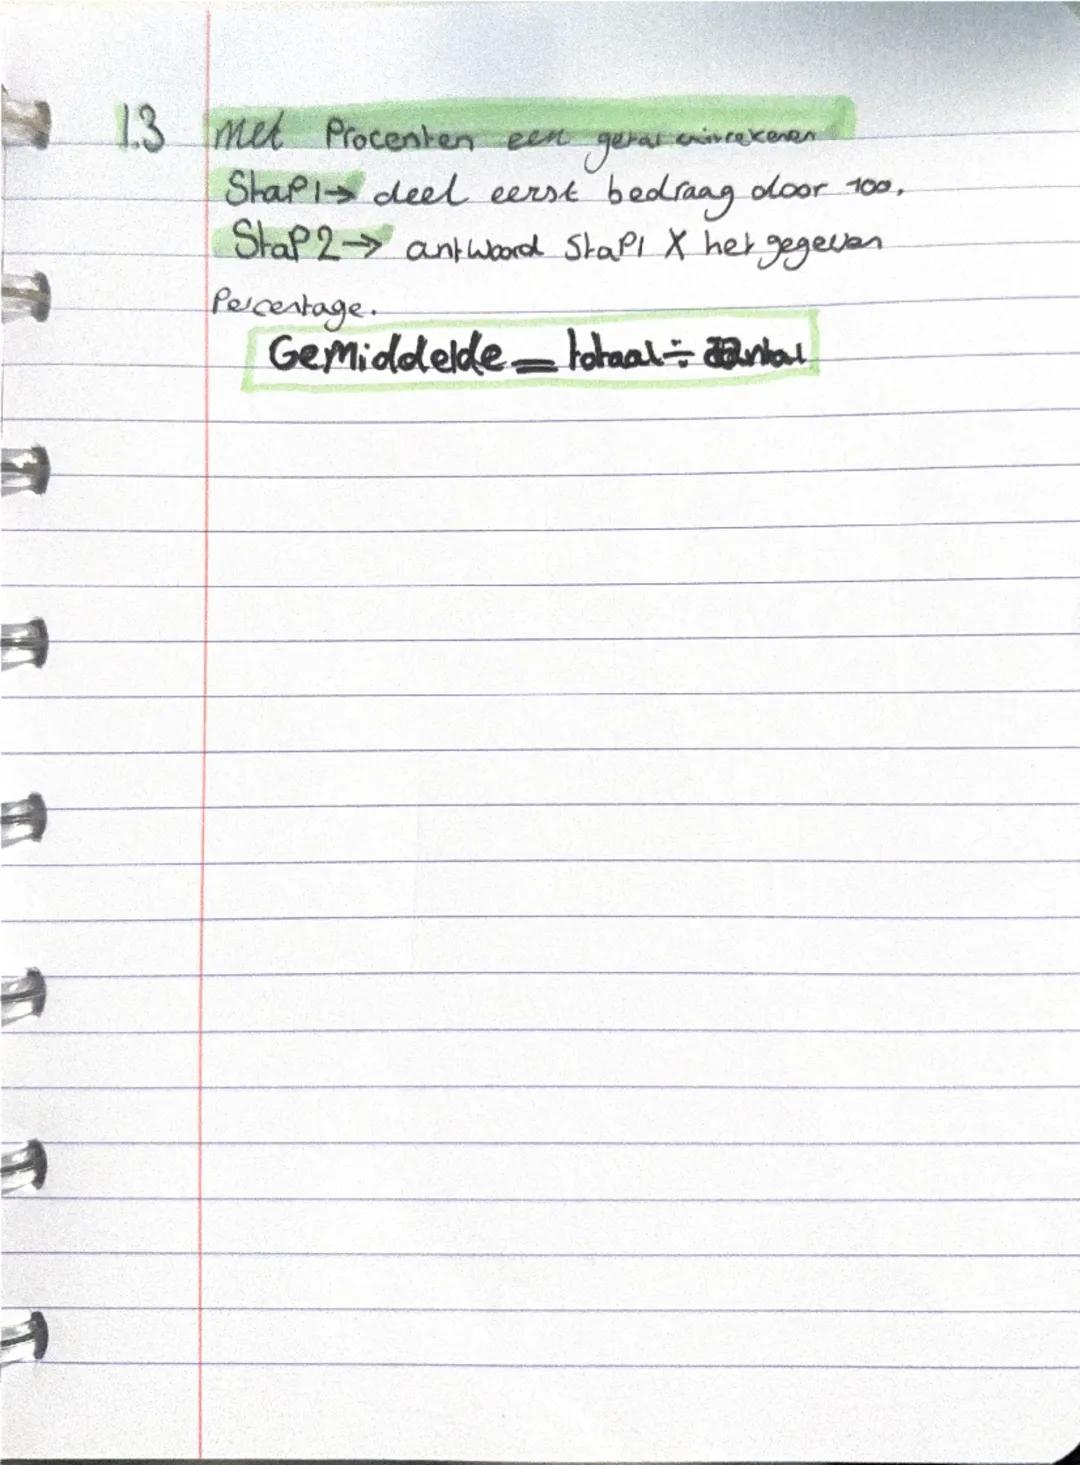 1.3 Met Procenten een getal uitrekenen
Stap 1 → deel eerst bedraag door 100.
Stap 2 → antwoord Stap 1 X het gegeven
Percentage.
Gemiddelde = totaal ÷ aantal